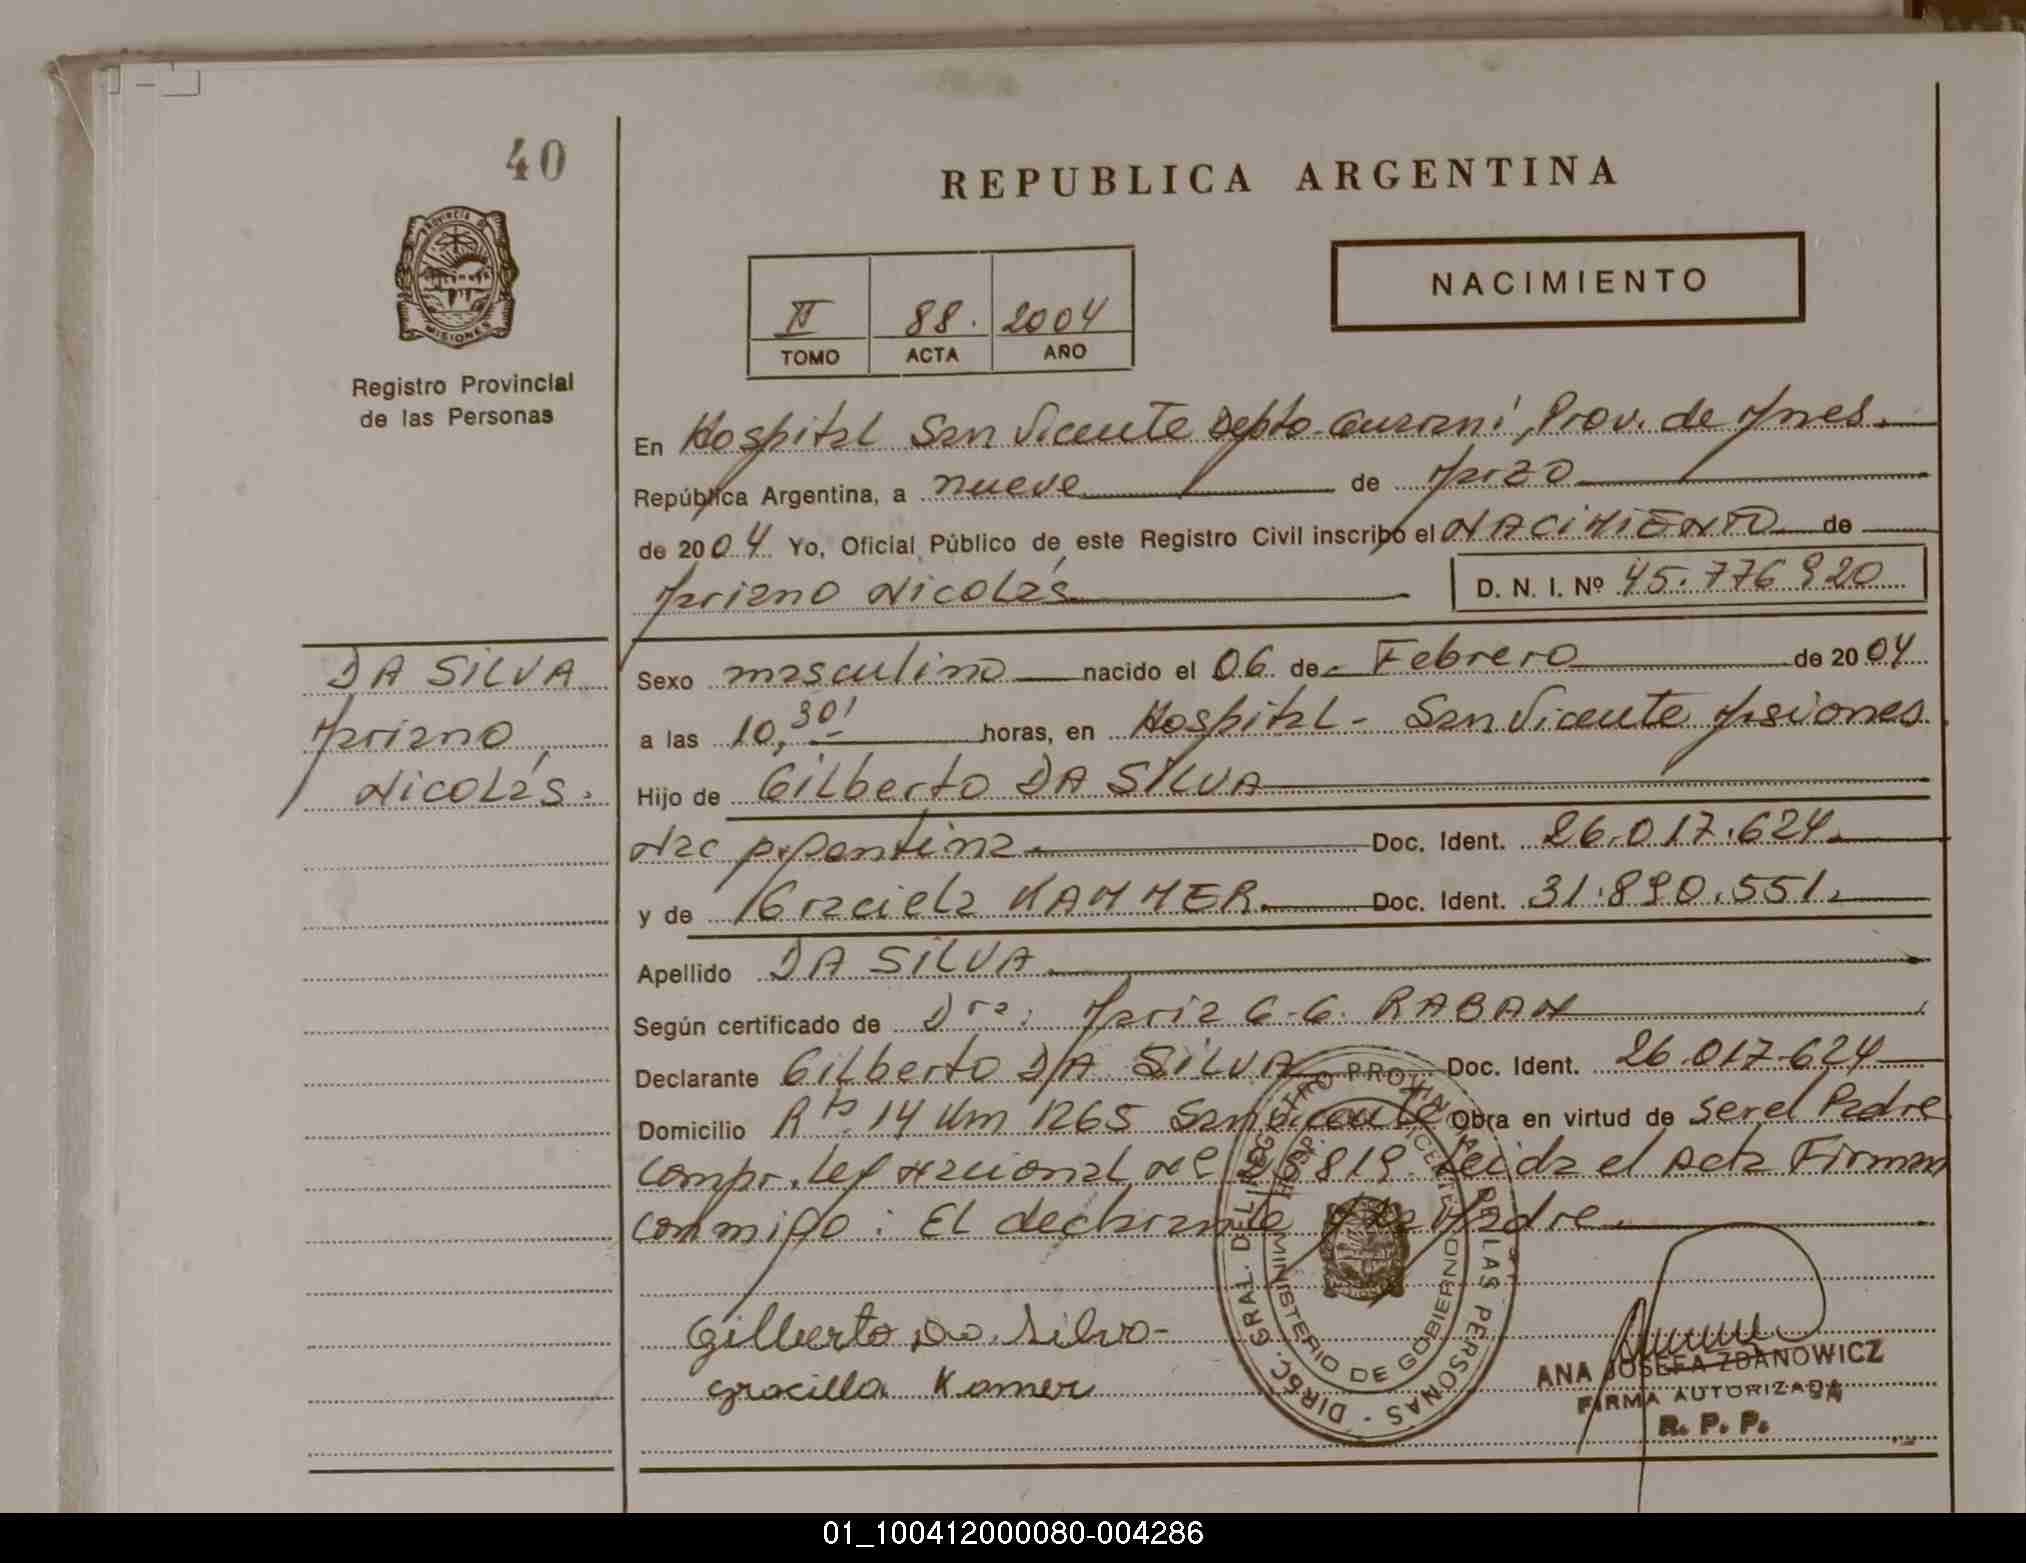 40
REPUBLICA ARGENTINA
NACIMIENTO
PROVINCIA DE
MISIONES
II 88. 2004
TOMO ACTA AÑO
Registro Provincial
de las Personas
En Hospital San Vicente Depto Guaraní, Prov. de Mnes.
República Argentina, a nueve de Marzo
de 2004 Yo, Oficial Público de este Registro Civil inscribo el NACIMIENTO de
Mariano Nicolás D. N. I. Nº 45.776920
DA SILVA
Mariano
Nicolás.
Sexo masculino nacido el 06 de Febrero de 2004
a las 10,30' horas, en Hospital - San Vicente Misiones
Hijo de Gilberto DA SILVA
Nac Argentina Doc. Ident. 26.017.624
y de Graciela KAMMER. Doc. Ident. 31.890.551.
Apellido DA SILVA
Según certificado de Dra: María G. G. RABAN
Declarante Gilberto DA SILVA Doc. Ident. 26.017.624
Domicilio Rta 14 Km 1265 San Vicente Obra en virtud de ser el Padre
Compr. Ley Nacional Nº 819. Leida el Acta Firman
conmigo: El declarante y la Madre.
Gilberto Da Silva
Gracilla Kamer
DIREC. GRAL. DEL REGISTRO PROVINCIAL DE LAS PERSONAS
HOSP. VICENTE
MINISTERIO DE GOBIERNO
ANA JOSEFA ZDANOWICZ
FIRMA AUTORIZADA
R. P. P.
01_100412000080-004286